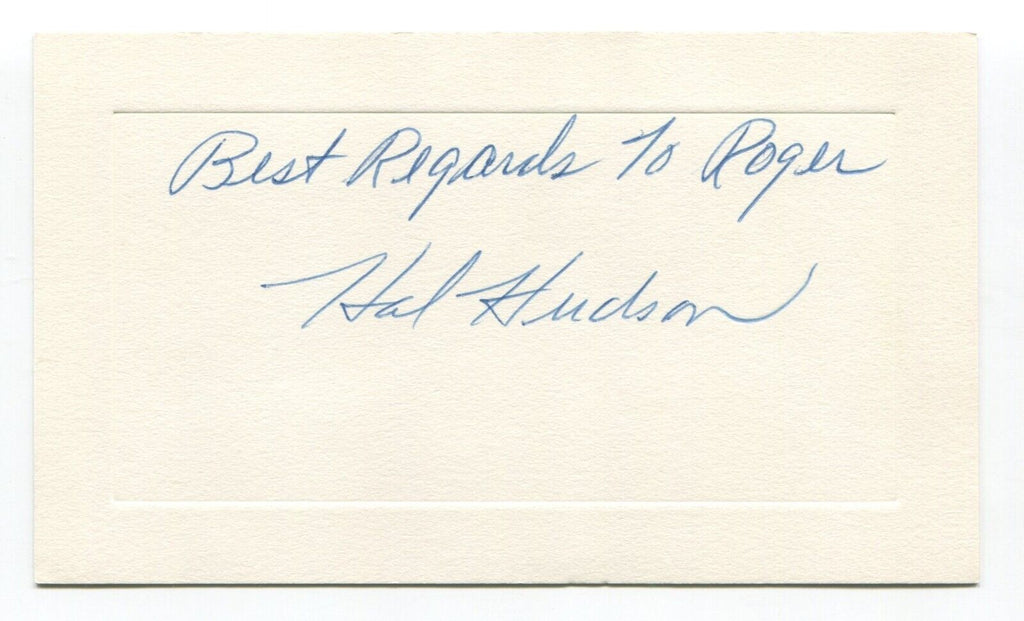 Best Regards To Roger
Hal Hudson